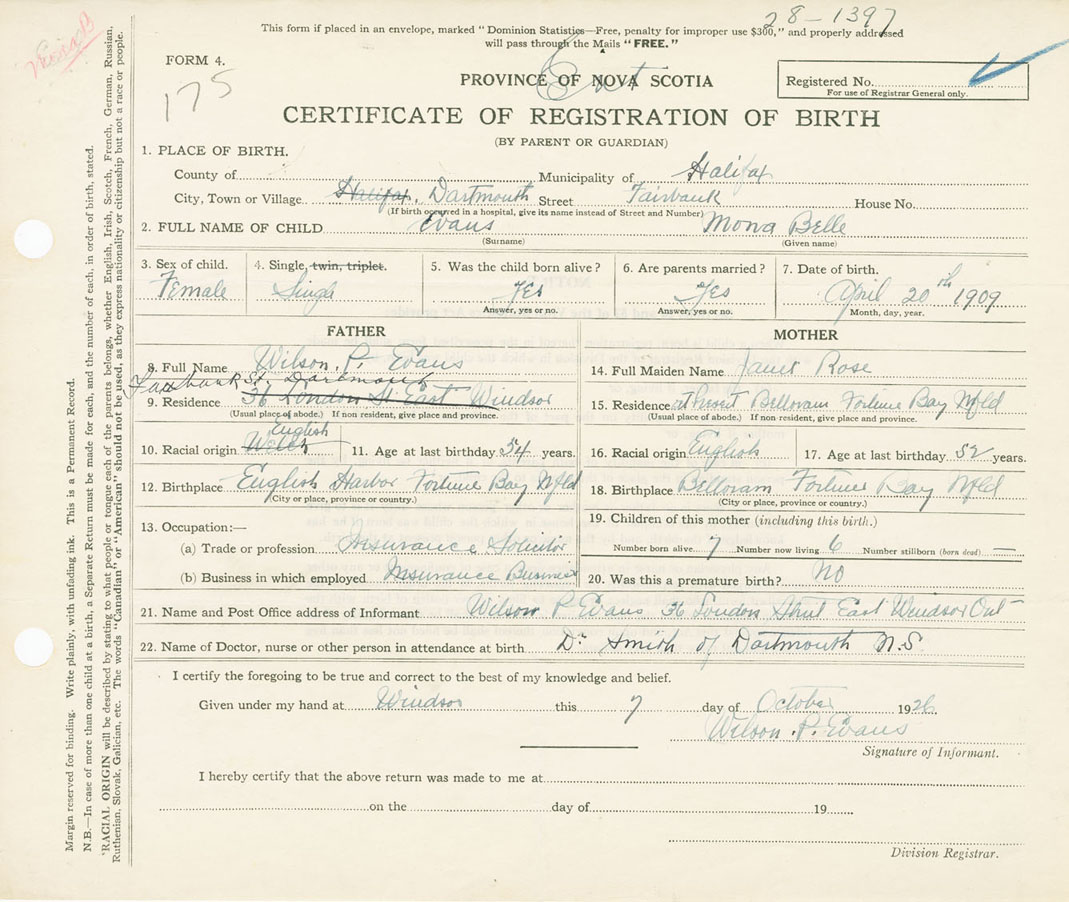 28-1397
This form if placed in an envelope, marked "Dominion Statistics—Free, penalty for improper use $300," and properly addressed
will pass through the Mails "FREE."
FORM 4.
175
PROVINCE OF NOVA SCOTIA
Registered No.
For use of Registrar General only.
CERTIFICATE OF REGISTRATION OF BIRTH
(BY PARENT OR GUARDIAN)
1. PLACE OF BIRTH.
County of Municipality of Halifax
City, Town or Village Halifax, Dartmouth Street Fairbank House No.
(If birth occurred in a hospital, give its name instead of Street and Number)
2. FULL NAME OF CHILD Evans Mona Belle
(Surname) (Given name)
3. Sex of child. 4. Single, twin, triplet. 5. Was the child born alive? 6. Are parents married? 7. Date of birth.
Female Single Yes Yes April 20th 1909
Answer, yes or no. Answer, yes or no. Month, day, year.
FATHER
8. Full Name Wilson. P. Evans
Fairbank St. Dartmouth
9. Residence 36 London St East Windsor
(Usual place of abode.) If non resident, give place and province.
English
10. Racial origin Welch 11. Age at last birthday 54 years.
12. Birthplace English Harbor Fortune Bay Nfld
(City or place, province or country.)
13. Occupation:—
(a) Trade or profession Insurance Solicitor
(b) Business in which employed Insurance Business
MOTHER
14. Full Maiden Name Janet Rose
15. Residence at Present Belloram Fortune Bay Nfld
(Usual place of abode.) If non resident, give place and province.
16. Racial origin English 17. Age at last birthday 52 years.
18. Birthplace Belloram Fortune Bay Nfld
(City or place, province or country.)
19. Children of this mother (including this birth.)
Number born alive 7 Number now living 6 Number stillborn (born dead) —
20. Was this a premature birth? No
21. Name and Post Office address of Informant Wilson P Evans 36 London Street East Windsor Ont
22. Name of Doctor, nurse or other person in attendance at birth Dr Smith of Dartmouth N.S.
I certify the foregoing to be true and correct to the best of my knowledge and belief.
Given under my hand at Windsor this 7 day of October 1926.
Wilson. P. Evans
Signature of Informant.
I hereby certify that the above return was made to me at
on the day of 19
Division Registrar.
Margin reserved for binding. Write plainly, with unfading ink. This is a Permanent Record.
N.B.—In case of more than one child at a birth, a Separate Return must be made for each, and the number of each, in order of birth, stated.
'RACIAL ORIGIN will be described by stating to what people or tongue each of the parents belongs, whether English, Irish, Scotch, French, German, Russian,
Ruthenian, Slovak, Galician, etc. The words "Canadian" or "American" should not be used, as they express nationality or citizenship but not a race or people.